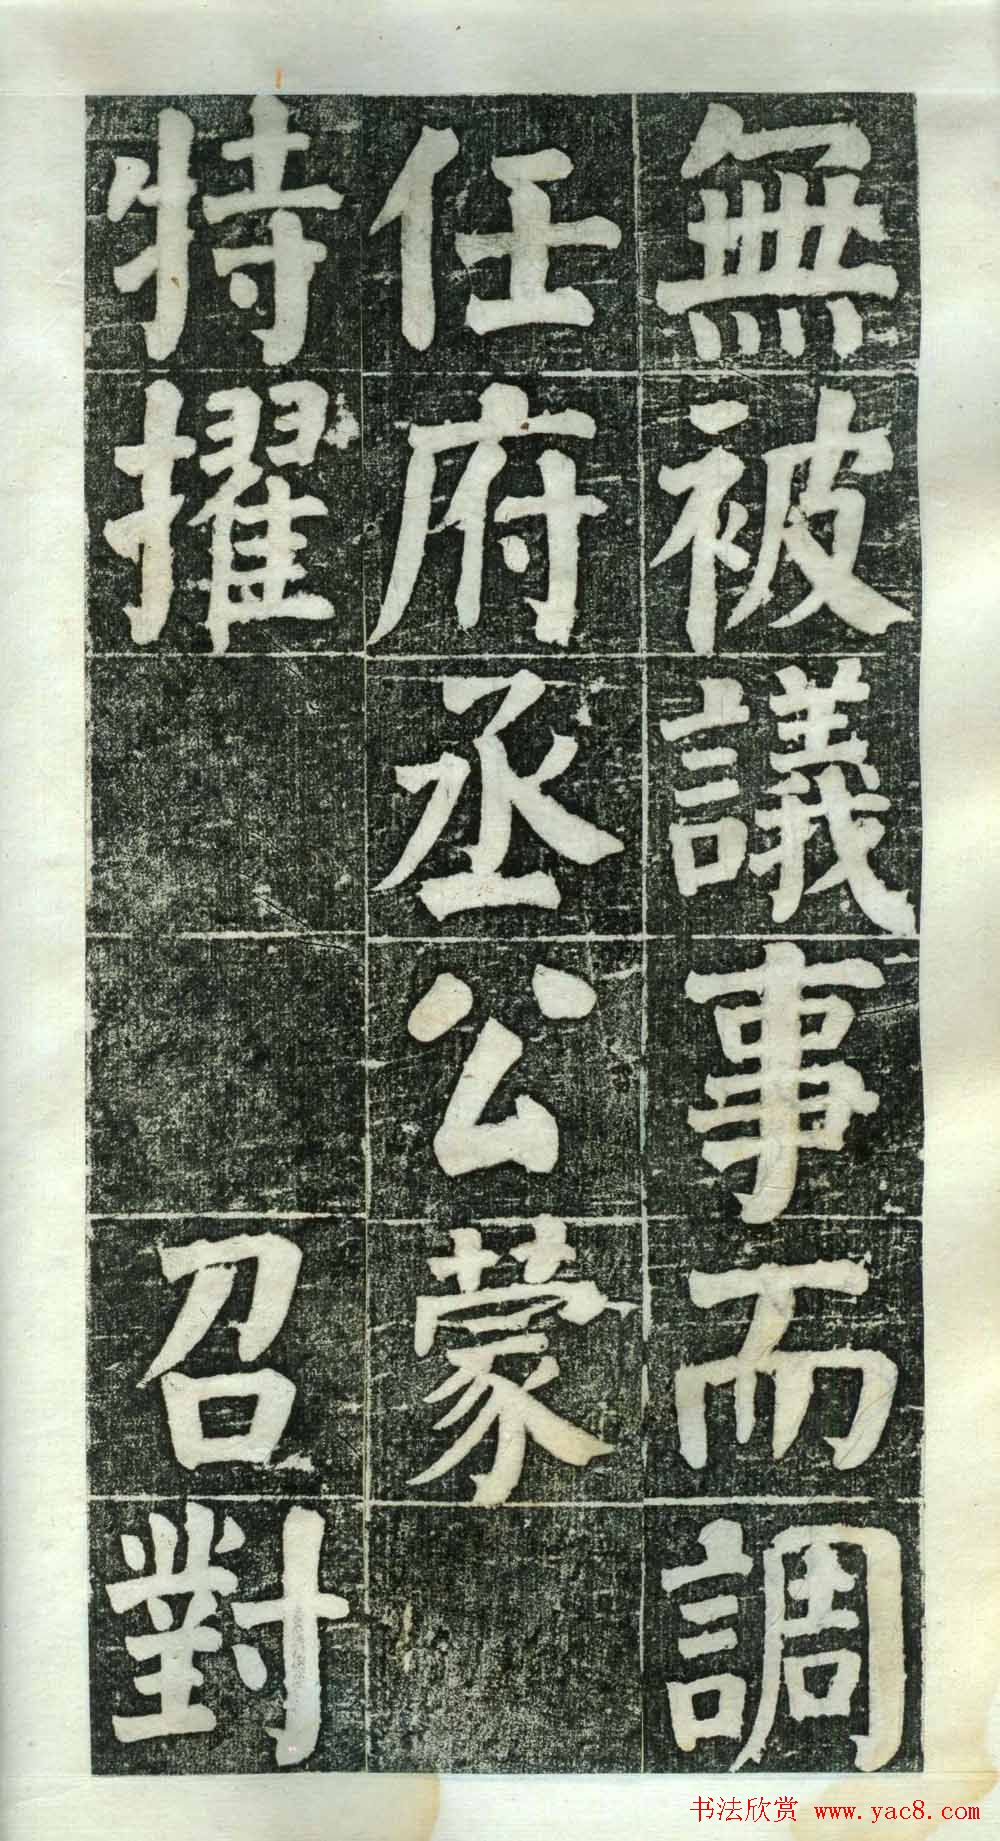 無被議事而調
任府丞公蒙
特擢召對
书法欣赏 www.yac8.com